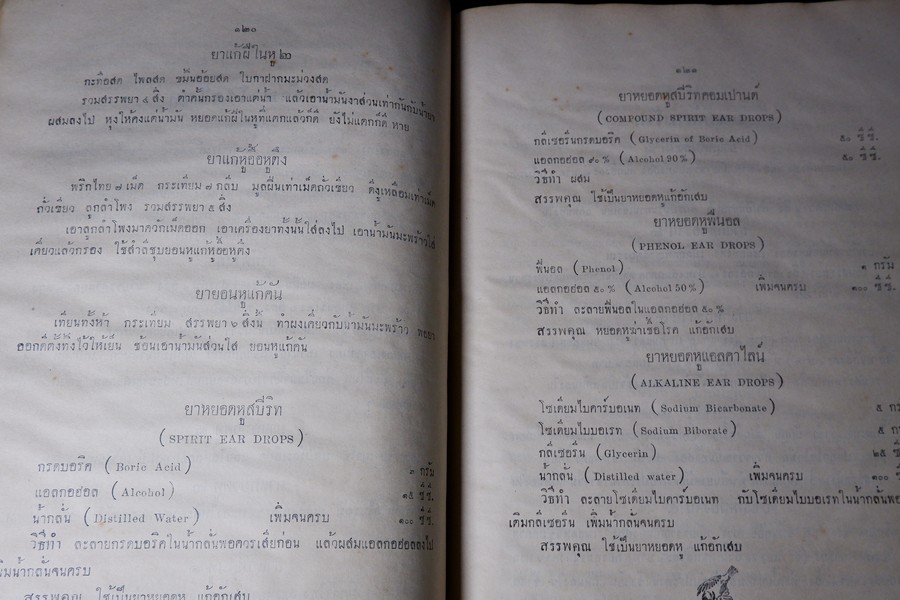 ๑๒๐
ยาแก้ฝีในหู ๒
กะทือสด ไพลสด ขมิ้นอ้อยสด ใบกาฝากมะม่วงสด
รวมสรรพยา ๔ สิ่ง ตำคั้นกรองเอาแต่น้ำ แล้วเอาน้ำมันงาส่วนเท่ากันกับน้ำยา
ผสมลงไป หุงให้คงแต่น้ำมัน หยอดแก้ฝีในหูที่แตกแล้วก็ดี ยังไม่แตกก็ดี หาย
ยาแก้หูอื้อหูตึง
พริกไทย ๗ เม็ด กระเทียม ๗ กลีบ มูลฝิ่นเท่าเม็ดถั่วเขียว ดีงูเหลือมเท่าเม็ด
ถั่วเขียว ลูกลำโพง รวมสรรพยา ๕ สิ่ง
เอาลูกลำโพงมาคว้กเม็ดออก เอาเครื่องยาทั้งนั้นใส่ลงไป เอาน้ำมันมะพร้าวใส่
เคี่ยวแล้วกรอง ใช้สำลีชุบยอนหูแก้หูอื้อหูตึง
ยายอนหูแก้คัน
เทียนทั้งห้า กระเทียม สรรพยา ๖ สิ่งนี้ ทำผงเคี่ยวกับน้ำมันมะพร้าว พอยา
ออกดีตั้งทิ้งไว้ให้เย็น ช้อนเอาน้ำมันส่วนใส ยอนหูแก้คัน
ยาหยอดหูสปิริท
(SPIRIT EAR DROPS)
กรดบอริค (Boric Acid) กรัม
แอลกอฮอล (Alcohol) ๑๕ ซี.ซี.
น้ำกลั่น (Distilled Water) เพิ่มจนครบ ๑๐๐ ซี.ซี.
วิธีทำ ละลายกรดบอริคในน้ำกลั่นพอควรเสียก่อน แล้วผสมแอลกอฮอลลงไป
น้ำกลั่นจนครบ
สรรพคุณ ใช้เป็นยาหยอดหู แก้อักเสบ
๑๒๑
ยาหยอดหูสปิริทคอมเปานด์
(COMPOUND SPIRIT EAR DROPS)
กลีเซอรีนกรดบอริค (Glycerin of Boric Acid) ๕๐ ซี.ซี.
แอลกอฮอล ๙๐ % (Alcohol 90 %) ๕๐ ซี.ซี.
วิธีทำ ผสม
สรรพคุณ ใช้เป็นยาหยอดหูแก้อักเสบ
ยาหยอดหูฟีนอล
(PHENOL EAR DROPS)
ฟีนอล (Phenol) ๑ กรัม
แอลกอฮอล ๕๐ % (Alcohol 50 %) เพิ่มจนครบ ๑๐๐ ซี.ซี.
วิธีทำ ละลายฟีนอลในแอลกอฮอล ๕๐ %
สรรพคุณ หยอดหูฆ่าเชื้อโรค แก้อักเสบ
ยาหยอดหูแอลคาไลน์
(ALKALINE EAR DROPS)
โซเดี่ยมไบคาร์บอเนท (Sodium Bicarbonate) ๕
โซเดี่ยมไบบอเรท (Sodium Biborate) ๕
กลีเซอรีน (Glycerin) ๒๕
น้ำกลั่น (Distilled water) เพิ่มจนครบ ๑๐๐
วิธีทำ ละลายโซเดี่ยมไบคาร์บอเนท กับโซเดี่ยมไบบอเรทในน้ำกลั่น
เติมกลีเซอรีน เพิ่มน้ำกลั่นจนครบ
สรรพคุณ ใช้เป็นยาหยอดหู แก้อักเสบ